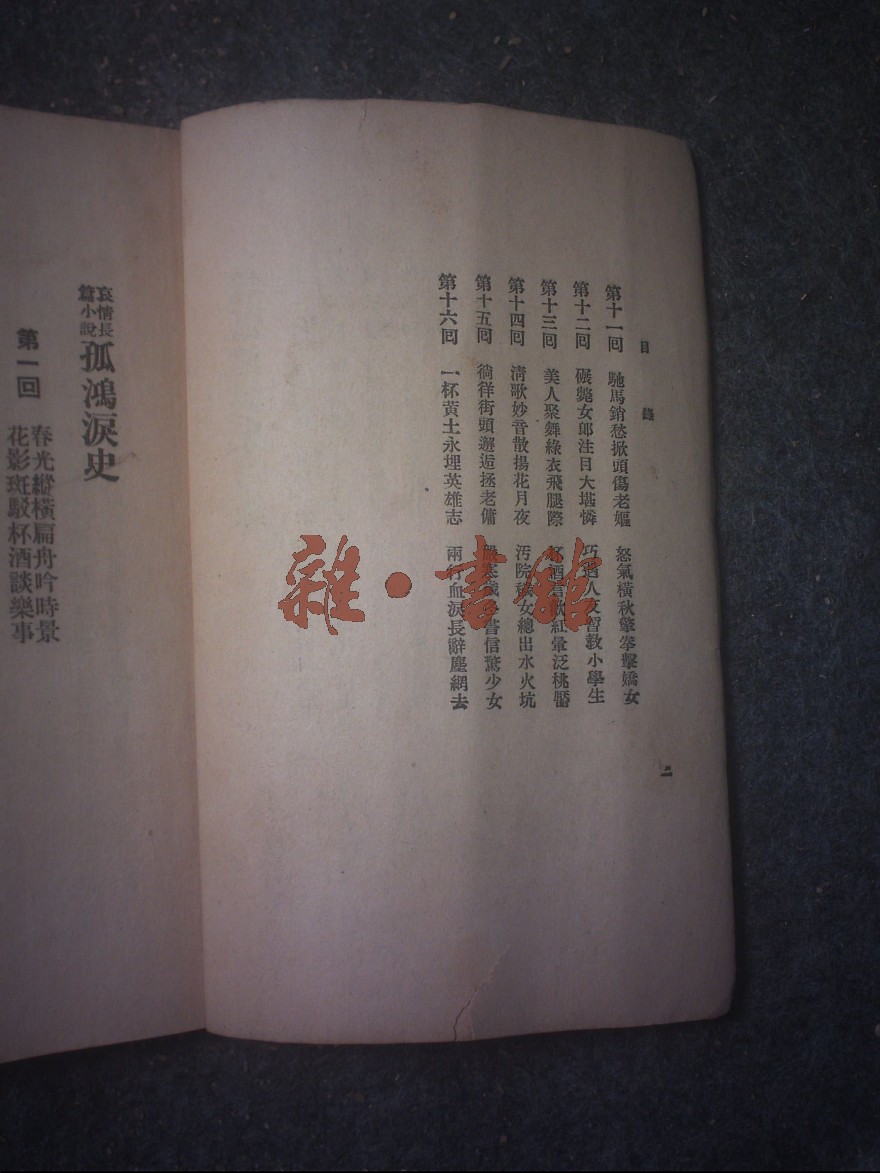 目錄
第十一回 馳馬銷愁掀頭傷老嫗 怒氣橫秋擎拳擊嬌女
第十二回 碾斃女郎注目大堪憐 巧遇人友習敎小學生
第十三回 美人聚舞綠衣飛腿際 杯酒言歡紅暈泛桃靨
第十四回 淸歌妙音散揚花月夜 汚院 女總出水火坑
第十五回 徜徉街頭邂逅拯老傭 書信驚少女
第十六回 一杯黃土永埋英雄志 兩行血淚長辭塵網去
二
哀情長篇小說 孤鴻淚史
第一回 春光縱橫扁舟吟時景
花影斑駁杯酒談樂事
雜·書館